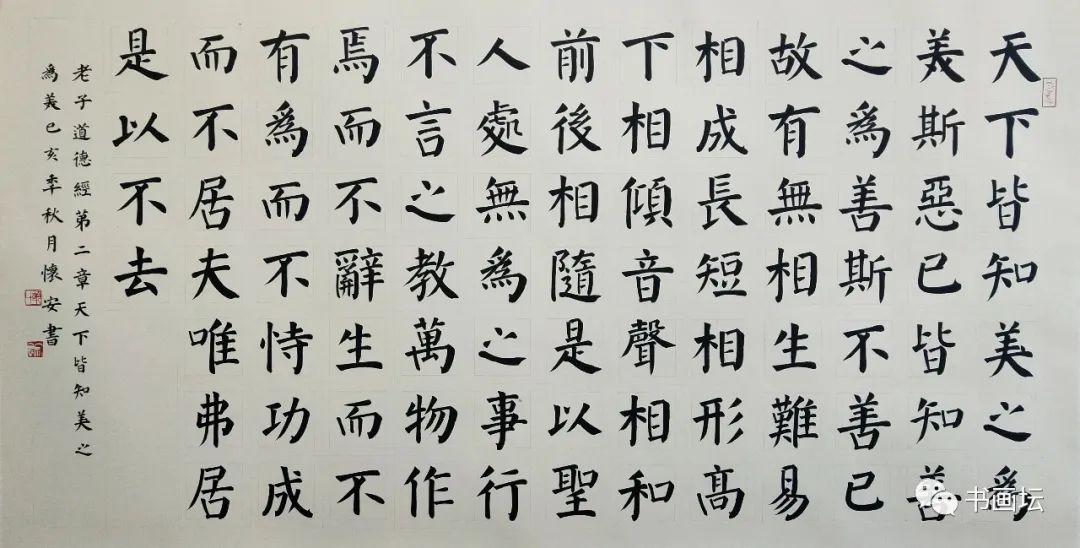 天下皆知美之為
美斯惡已皆知善
之為善斯不善已
故有無相生難易
相成長短相形高
下相傾音聲相和
前後相隨是以聖
人處無為之事行
不言之教萬物作
焉而不辭生而不
有為而不恃功成
而不居夫唯弗居
是以不去
老子道德經第二章天下皆知美之
為美己亥年秋月懷安書
书画坛